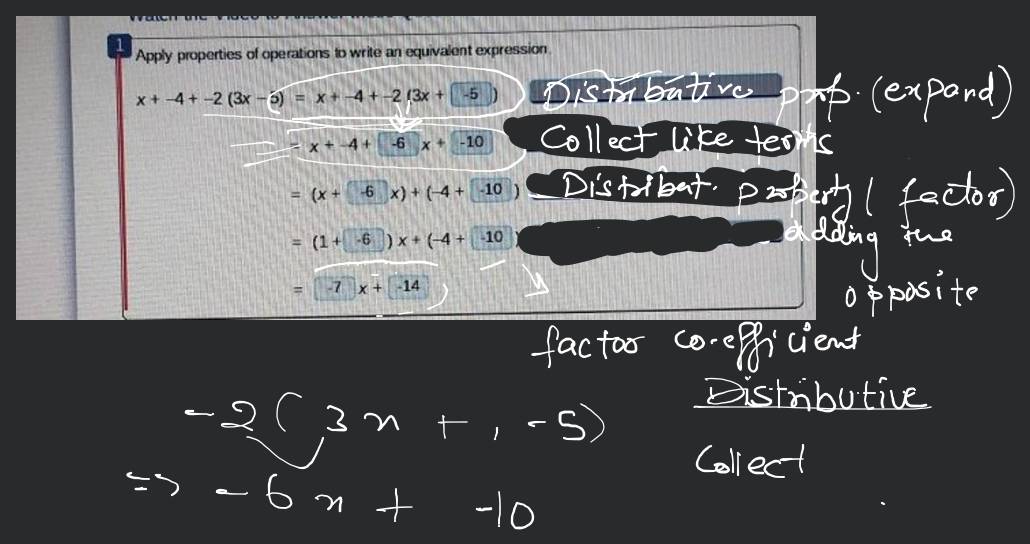 1 Apply properties of operations to write an equivalent expression
x + -4 + -2 (3x - 5) = x + -4 + -2 (3x + -5) Distributive prop. (expand)
= x + -4 + -6 x + -10 Collect like terms
= (x + -6 x) + (-4 + -10) Distribut. property ( factor)
= (1 + -6) x + (-4 + -10) adding the
opposite
= -7 x + -14
factor co-efficient
Distributive
-2 ( 3x + , -5)
Collect
=> -6x + -10